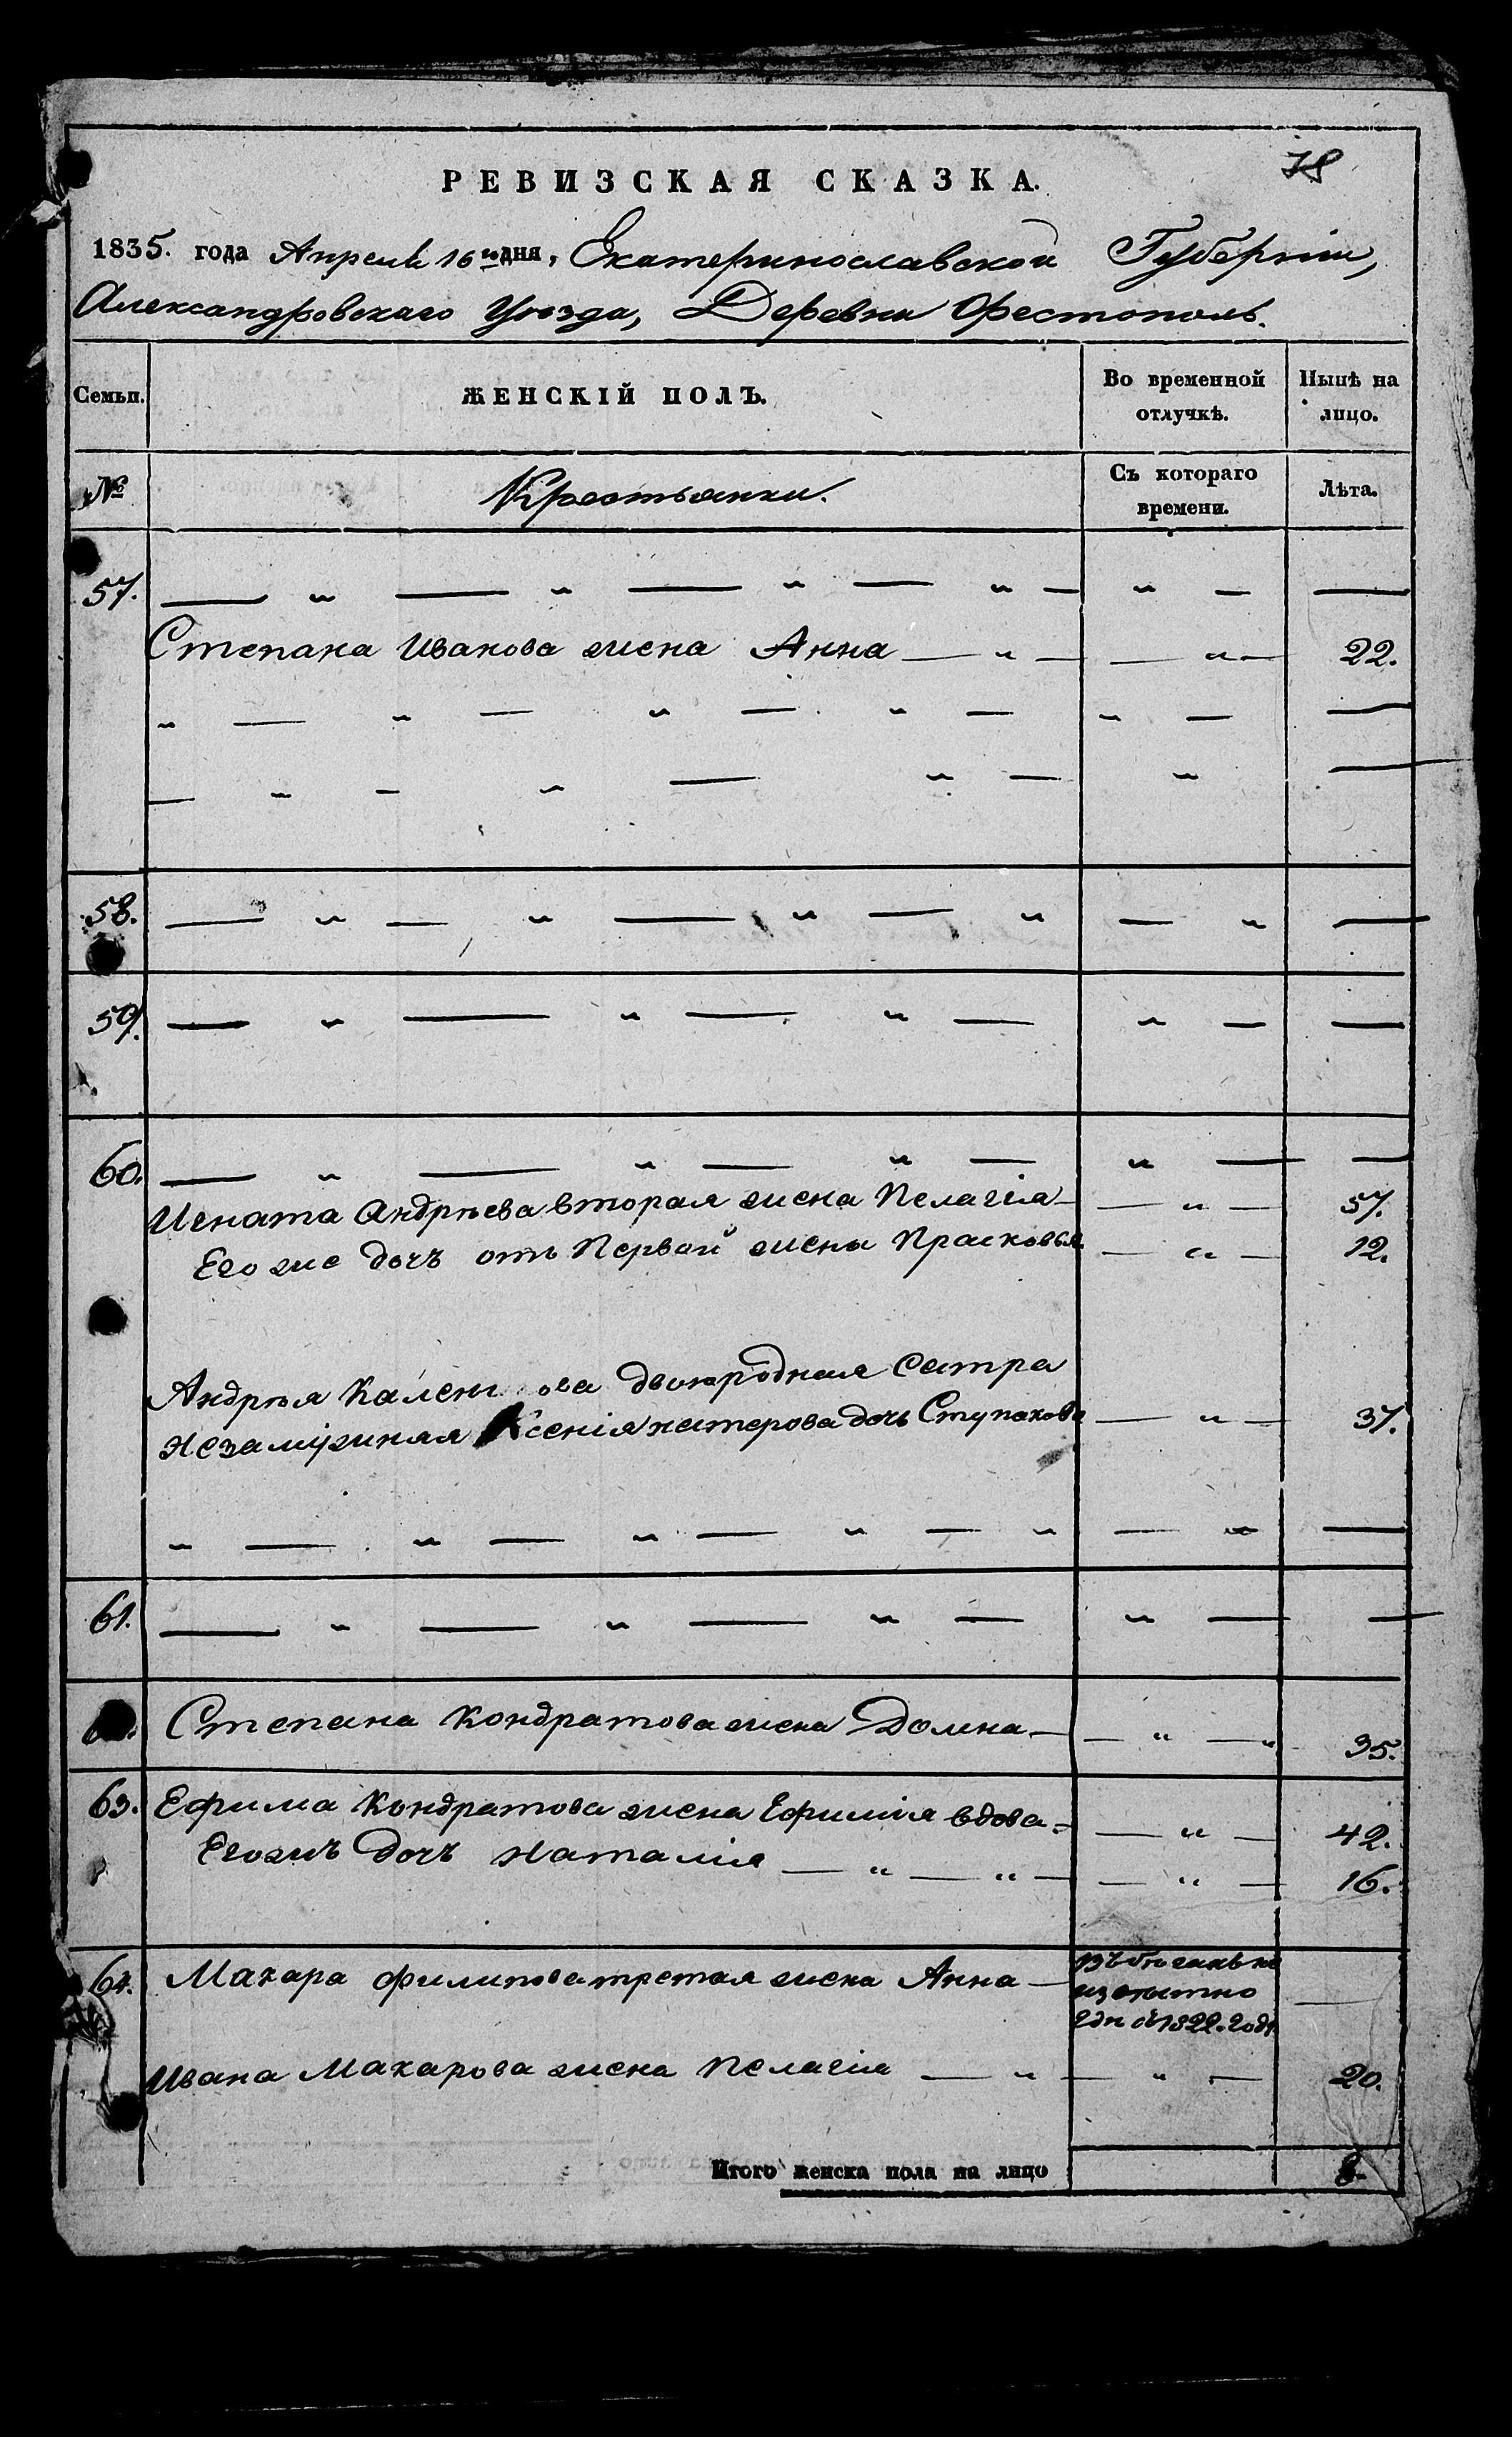 78
РЕВИЗСКАЯ СКАЗКА.
1835. года Апреля 16го дня, Екатеринославской Губернии,
Александровскаго Уезда, Деревни Орестополь.
Семьи. ЖЕНСКІЙ ПОЛЪ. Во временной отлучкѣ. Нынѣ на лицо.
№ Крестьянки. Съ котораго времени. Лѣта.
57. — " — " — " — " — " — —
Степана Иванова жена Анна — " — — " — 22.
" — " — " — " — " — —
— " — " — " — " —
58. — " — " — " — " — " —
59. — " — " — " — " — —
60. — " — " — " — " — —
Игната Андрѣева вторая жена Пелагія — — " — 57.
Его же дочь отъ Первой жены Прасковья — " — 12.
Андрѣя двоюродная Сестра
Незамужняя Ксенія дочь Ступакова — " — 37.
" — " — " — " — " — " —
61. — " — " — " — " — —
Степана Кондратова жена Домна — — " — " 35.
63. Ефима Кондратова жена Ефимія вдова — — " — 42.
Его жъ дочь Наталія — " — " — — " — 16.
64. Макара Филипова третая жена Анна — въ бегахъ не
—
1822. года
Ивана Макарова жена Пелагія — " — " — 20.
Итого женска пола на лицо 8.